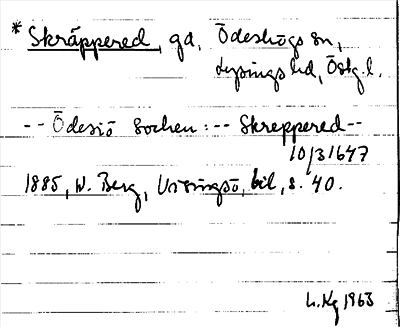 * Skräppered, gd, Ödeshögs sn,
Lysings hd, Östg.l.
-- Ödesiö Sochen: -- Skreppered --
10/3 1647
1885, W. Berg, Visingsö, bil, s. 40.
L. Kg 1963